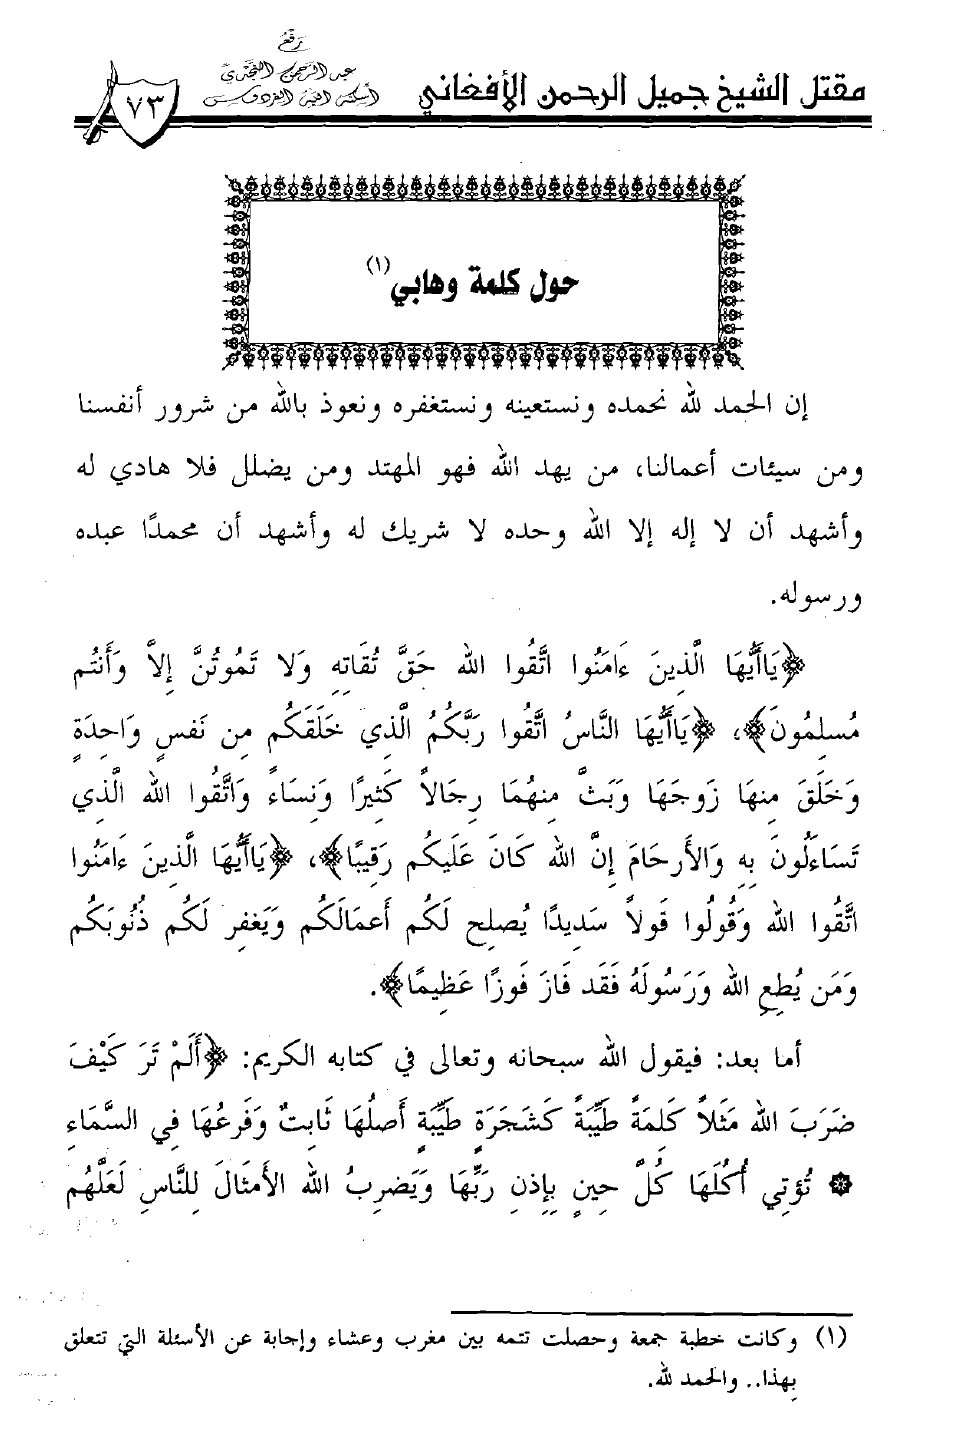 رفع
عبد الرحمن النجدي
أسكنه الله الفردوس
مقتل الشيخ جميل الرحمن الأفغاني
٧٣
حول كلمة وهابي(١)
إن الحمد لله نحمده ونستعينه ونستغفره ونعوذ بالله من شرور أنفسنا
ومن سيئات أعمالنا، من يهد الله فهو المهتد ومن يضلل فلا هادي له
وأشهد أن لا إله إلا الله وحده لا شريك له وأشهد أن محمدًا عبده
ورسوله.
﴿يَاأَيُّهَا الَّذِينَ ءَامَنُوا اتَّقُوا الله حَقَّ تُقَاتِهِ وَلا تَمُوتُنَّ إِلاَّ وَأَنتُم
مُسلِمُونَ﴾، ﴿يَاأَيُّهَا النَّاسُ اتَّقُوا رَبَّكُمُ الَّذِي خَلَقَكُم مِن نَفسٍ وَاحِدَةٍ
وَخَلَقَ مِنهَا زَوجَهَا وَبَثَّ مِنهُمَا رِجَالاً كَثِيرًا وَنِسَاءً وَاتَّقُوا الله الَّذِي
تَسَاءَلُونَ بِهِ وَالأَرحَامَ إِنَّ الله كَانَ عَلَيكُم رَقِيبًا﴾، ﴿يَاأَيُّهَا الَّذِينَ ءَامَنُوا
اتَّقُوا الله وَقُولُوا قَولاً سَدِيدًا يُصلِح لَكُم أَعمَالَكُم وَيَغفِر لَكُم ذُنُوبَكُم
وَمَن يُطِعِ الله وَرَسُولَهُ فَقَد فَازَ فَوزًا عَظِيمًا﴾.
أما بعد: فيقول الله سبحانه وتعالى في كتابه الكريم: ﴿أَلَمْ تَرَ كَيْفَ
ضَرَبَ الله مَثَلاً كَلِمَةً طَيِّبَةً كَشَجَرَةٍ طَيِّبَةٍ أَصلُهَا ثَابِتٌ وَفَرعُهَا فِي السَّمَاءِ
۞ تُؤتِي أُكُلَهَا كُلَّ حِينٍ بِإِذنِ رَبِّهَا وَيَضرِبُ الله الأَمثَالَ لِلنَّاسِ لَعَلَّهُم
(١) وكانت خطبة جمعة وحصلت تتمه بين مغرب وعشاء وإجابة عن الأسئلة التي تتعلق
بهذا.. والحمد لله.